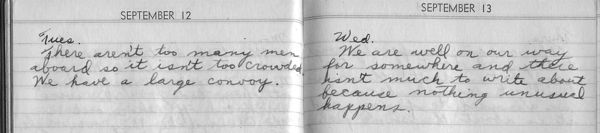 SEPTEMBER 12
Tues.
There aren't too many men
aboard so it isn't too crowded.
We have a large convoy.
SEPTEMBER 13
Wed.
We are well on our way
for somewhere and there
isn't much to write about
because nothing unusual
happens.